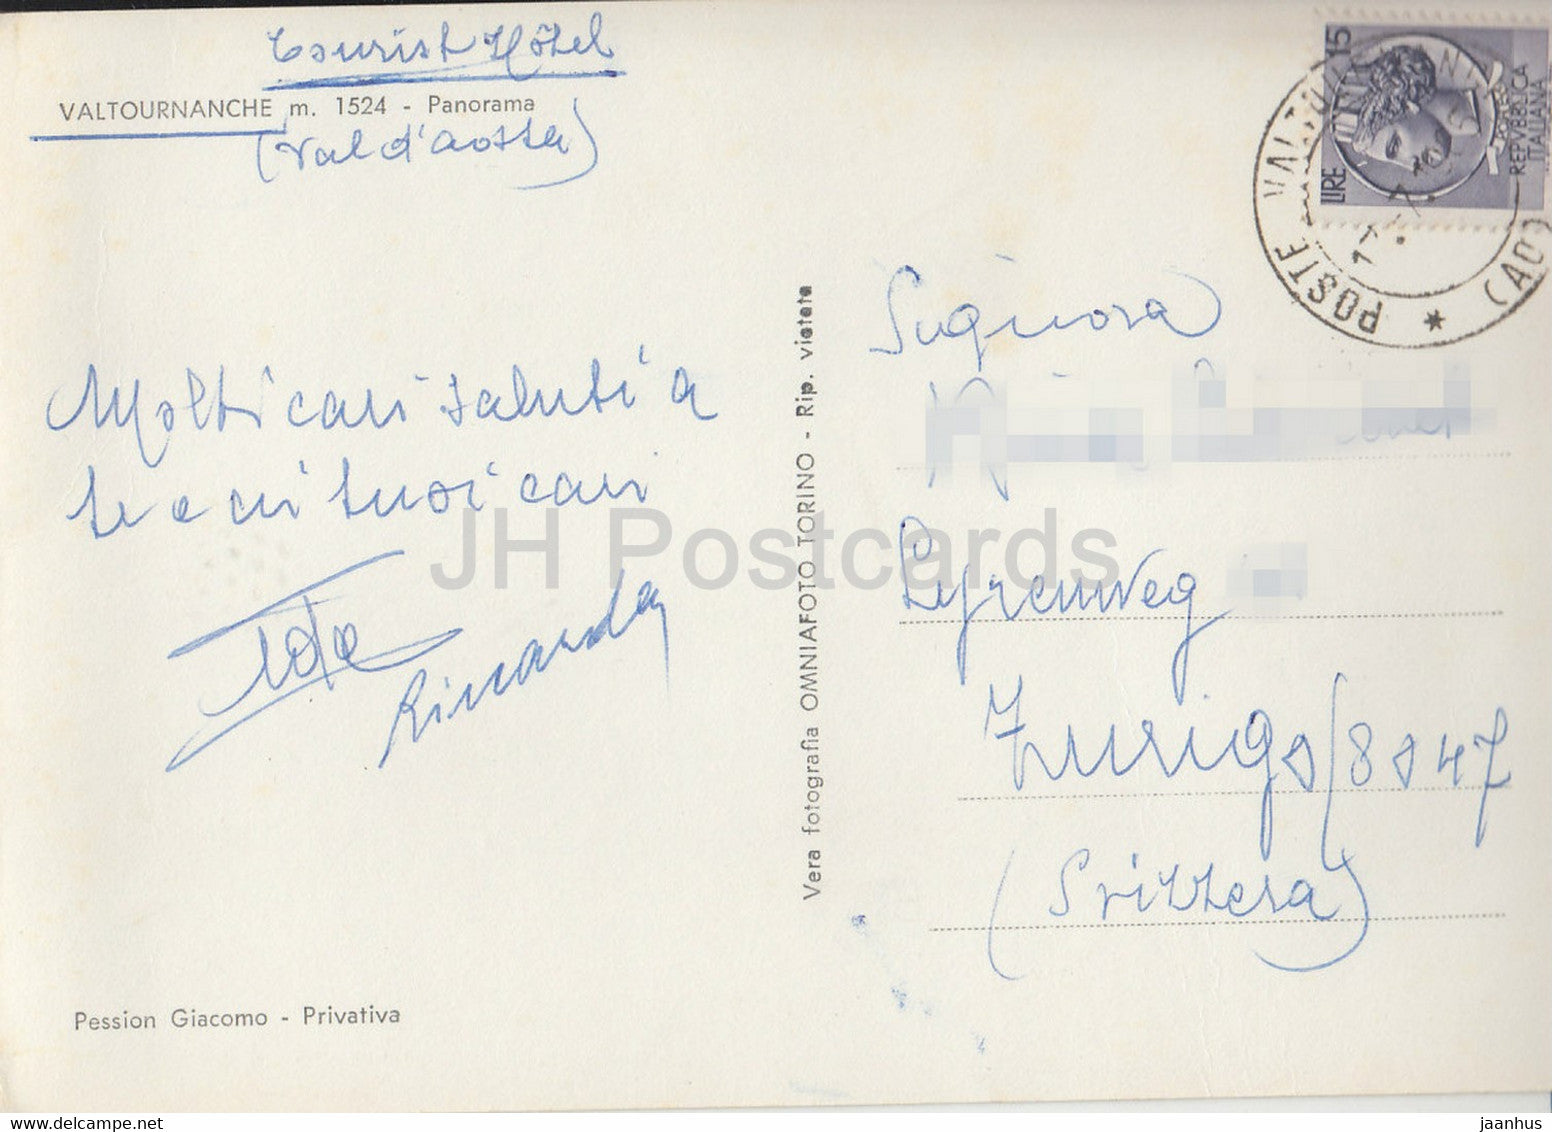 Tourist Hôtel
VALTOURNANCHE m. 1524 - Panorama
(Val d'Aosta)
Molti cari saluti a
te e ai tuoi cari
Ida
Riccarda
Pession Giacomo - Privativa
Vera fotografia OMNIAFOTO TORINO - Rip. vietata
LIRE 15
POSTE
REPVBBLICA
ITALIANA
POSTE VALTOURNANCHE * (AO)
Signora
Zurigo/8047
(Svizzera)
JH Postcards
jaanhus
www.delcampe.net